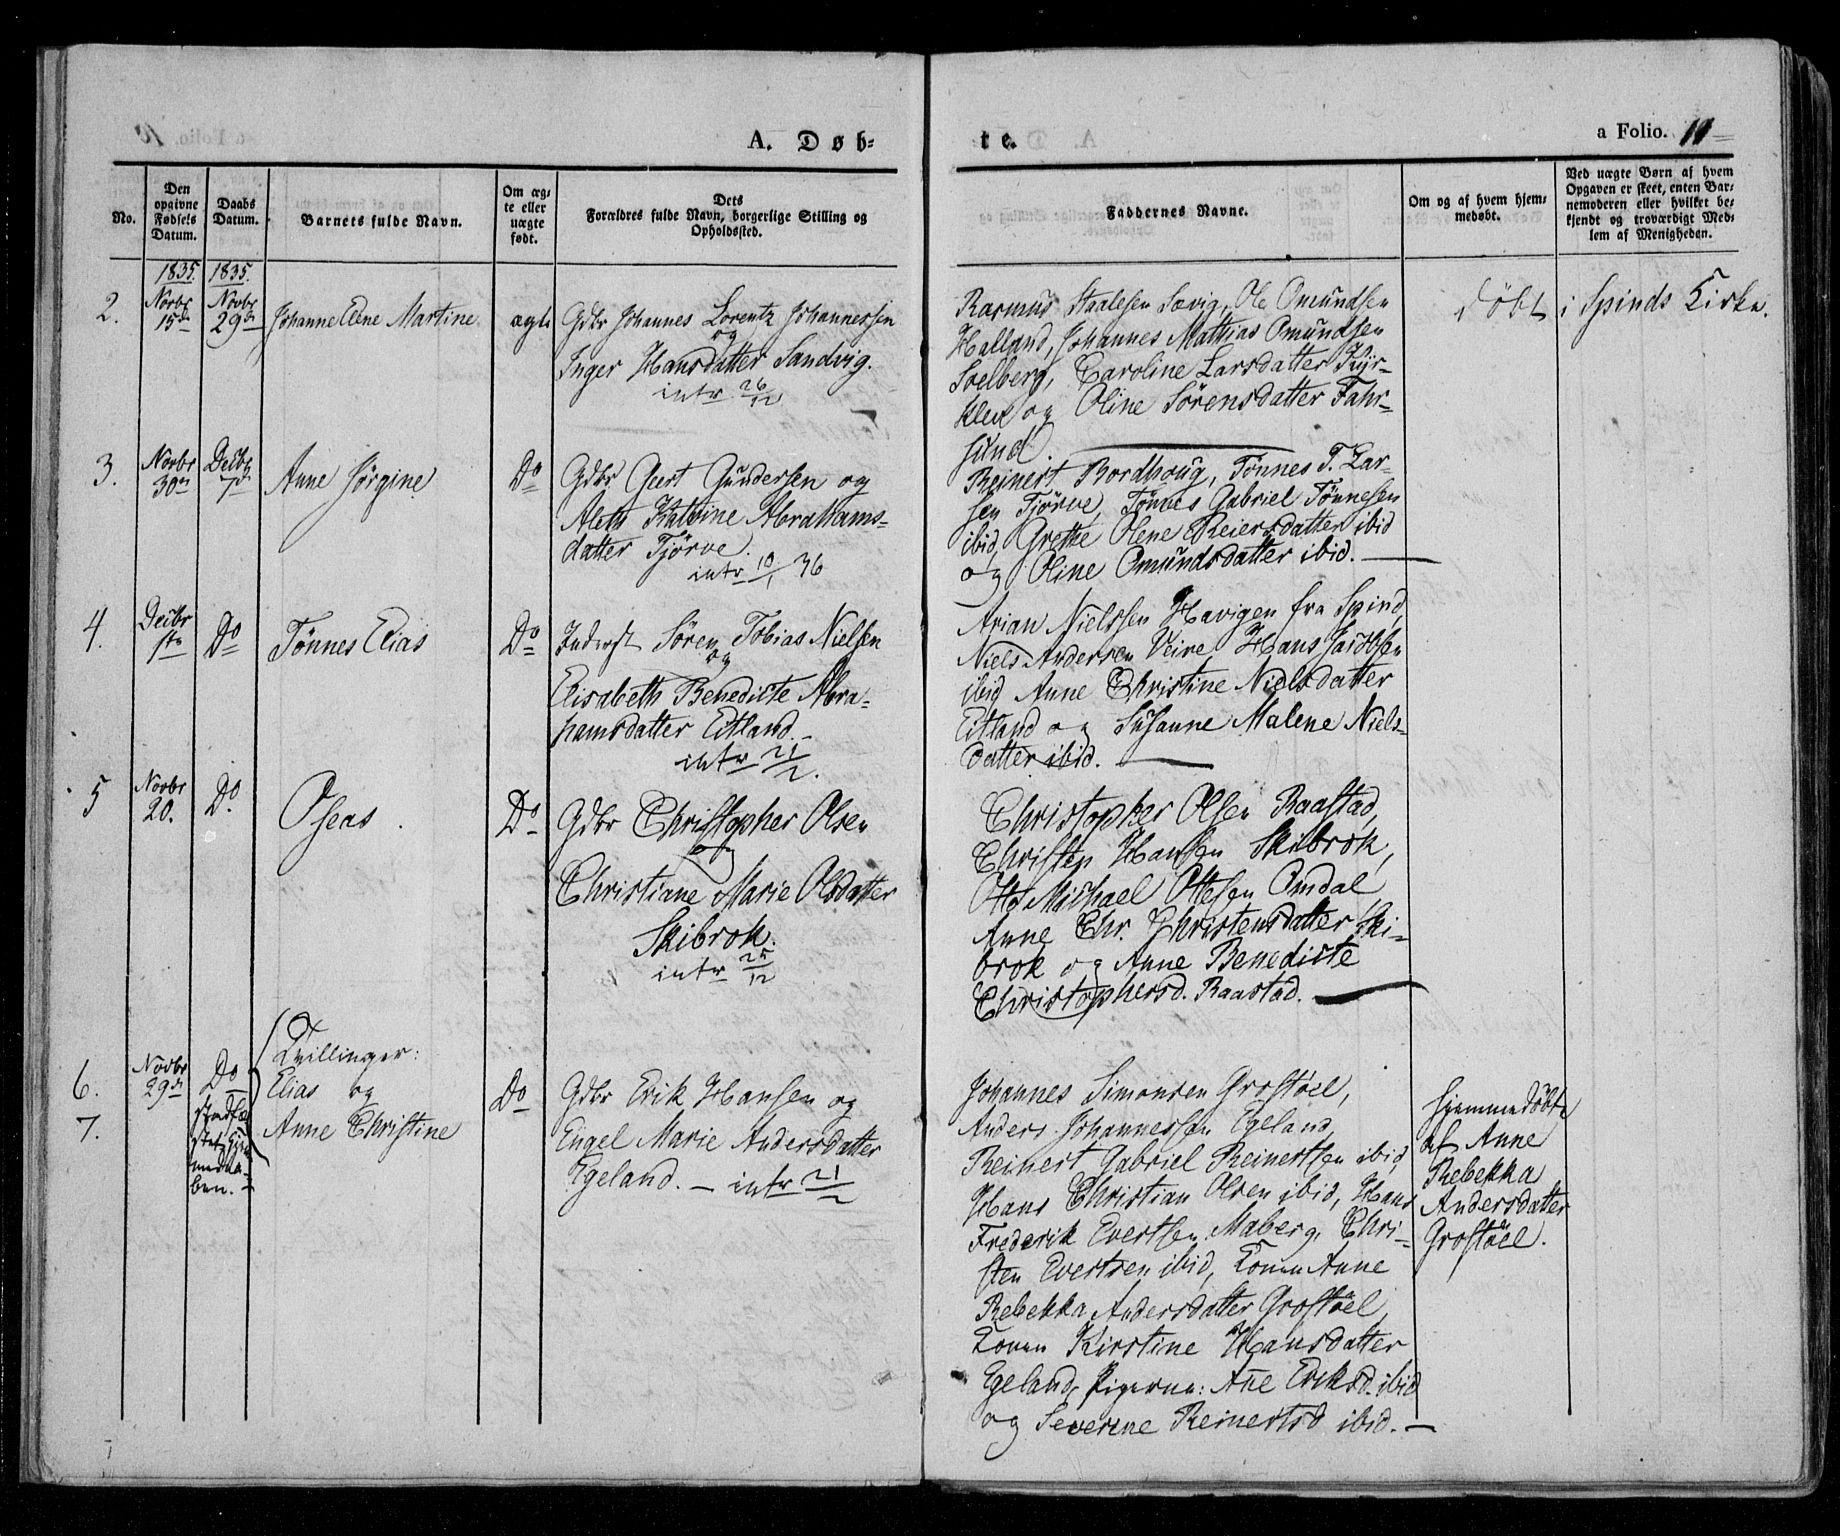 A. Døb-
te.
a Folio. 11
No.
Den opgivne Fødsels Datum.
Daabs Datum.
Barnets fulde Navn.
Om æg-
te eller
uægte
født.
Dets
Forældres fulde Navn, borgerlige Stilling og
Opholdssted.
Faddernes Navne.
Om og af hvem hjem-
medøbt.
Ved uægte Børn af hvem
Opgaven er skeet, enten Bar-
nemoderen eller hvilket be-
kjendt og troværdigt Med-
lem af Menigheden.
1835. 1835.
2. Novbr 15de Novbr 29de Johanne Elene Martine ægte Gdbr Johannes Lorentz Johannessen
og
Inger Hansdatter Sandvig.
intr 26/12
Rasmus Staalesen Sævig, Ole Omundsen
Halland, Johannes Mathias Omundsen
Soelberg, Caroline Larsdatter Kjør-
klev og Oline Sörensdatter Fahr-
sund.
døbt i Spinds Kirke.
3. Novbr 30te Decbr 7de Anne Jörgine Do Gdbr Geert Gundersen og
Aleth Katrine Abrahams-
datter Tjörve.
intr 10/1 36
Reinert Bordhoug, Tönnes T. Lar-
sen Tjörve, Tönnes Gabriel Tönnesen
ibid, Grethe Olene Reiersdatter ibid
og Oline Omundsdatter ibid.
4. Decbr 1ste Do Tönnes Elias Do Inderst Sören Tobias Nielsen
og
Elisabeth Benedicte Abra-
hamsdatter Eitland.
intr 21/2.
Arian Nielssen Havigen fra Spind,
Niels Andersen Veire Hans Jacobsen
ibid, Anne Christine Nielsdatter
Eitland og Susanne Malene Niels-
datter ibid.
5 Novbr 20. Do. Oseas. Do Gdbr Christopher Olsen
og
Christiane Marie Olsdatter
Skibrok.
intr 25/12
Christopher Olsen Raastad,
Christen Hansen Skibrok,
Otto Michael Ottesen Omdal
Anne Chr. Christensdatter Ski-
brok og Anne Benedicte
Christophersd. Raastad.
Tvillinger:
6. Novbr 29de Do Elias og
7. Anne Christine
stadfæ-
stet Hjem
medaa-
ben.
Do Gdbr Erik Hansen og
Engel Marie Andersdatter
Egeland. — intr 21/2
Johannes Simonsen Grostöel,
Anders Johannessen Egeland,
Reinert Gabriel Reinertsen ibid,
Hans Christian Olsen ibid, Hans
Frederik Evertsen Maberg, Chri-
sten Evertsen ibid, Konen Anne
Rebekka Andersdatter Grostöel,
Konen Kirstine Hansdatter
Egeland, Pigerne: Ane Eriksd. ibid
og Severine Reinertsd ibid.
hjemmedöbt
af Anne
Rebekka
Andersdatter
Grostöel.